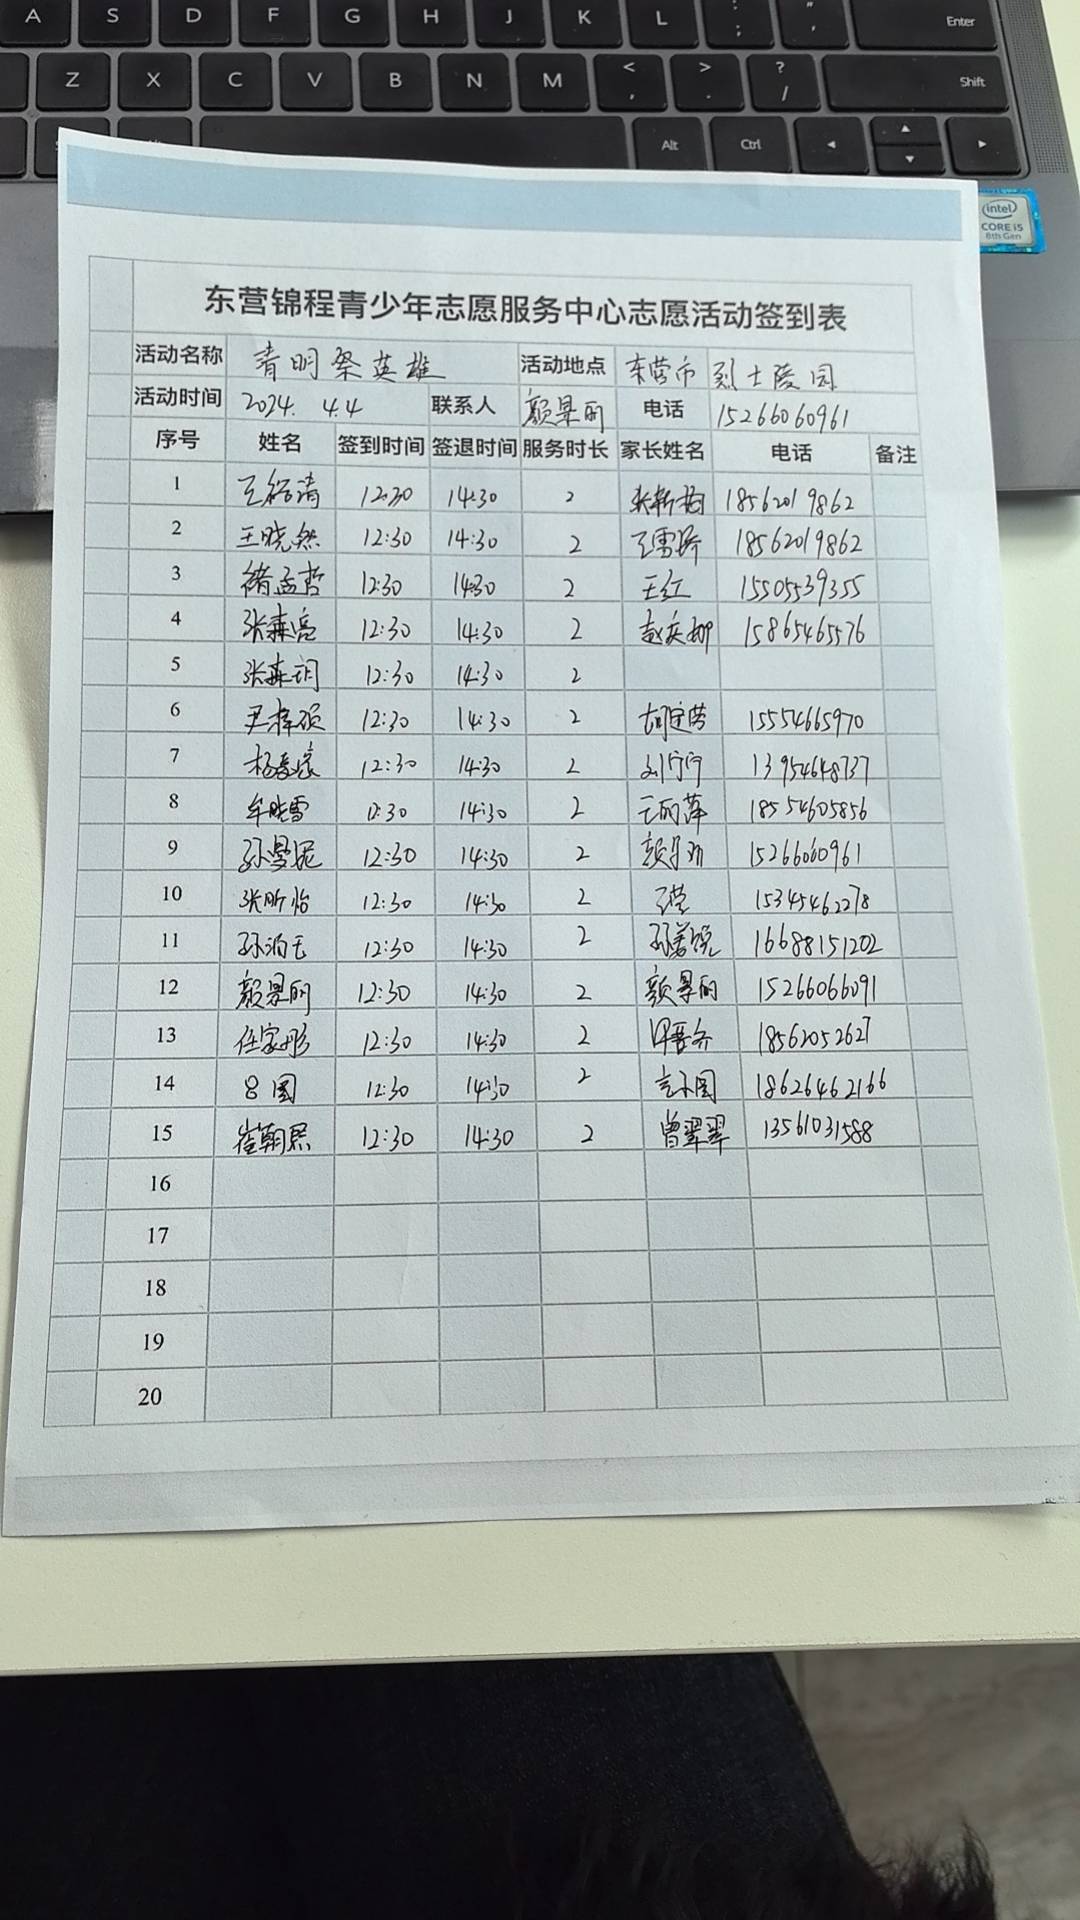 A S D F G H J K L : ; " ' Enter
Z X C V B N M < , > . ? / Shift
Alt Ctrl
intel
CORE i5
8th Gen
东营锦程青少年志愿服务中心志愿活动签到表
活动名称 青明祭英雄 活动地点 东营市烈士陵园
活动时间 2024. 4.4 联系人 颜景丽 电话 15266060961
序号 姓名 签到时间 签退时间 服务时长 家长姓名 电话 备注
1 12:30 14:30 2 18562019862
2 王晓然 12:30 14:30 2 18562019862
3 褚孟哲 12:30 14:30 2 王红 15505539355
4 张森亮 12:30 14:30 2 赵庆柳 15865465576
5 张森玥 12:30 14:30 2
6 尹梓硕 12:30 14:30 2 15554665970
7 12:30 14:30 2 刘宁宁 13954648737
8 牟晓雪 12:30 14:30 2 王丽萍 18554605856
9 孙曼妮 12:30 14:30 2 15266060961
10 张昕怡 12:30 14:30 2 15345462278
11 12:30 14:30 2 16688151202
12 颜景丽 12:30 14:30 2 颜景丽 15266066091
13 任家彤 12:30 14:30 2 18562052627
14 吕图 12:30 14:30 2 18626462166
15 崔朝熙 12:30 14:30 2 曾翠翠 13561031588
16
17
18
19
20